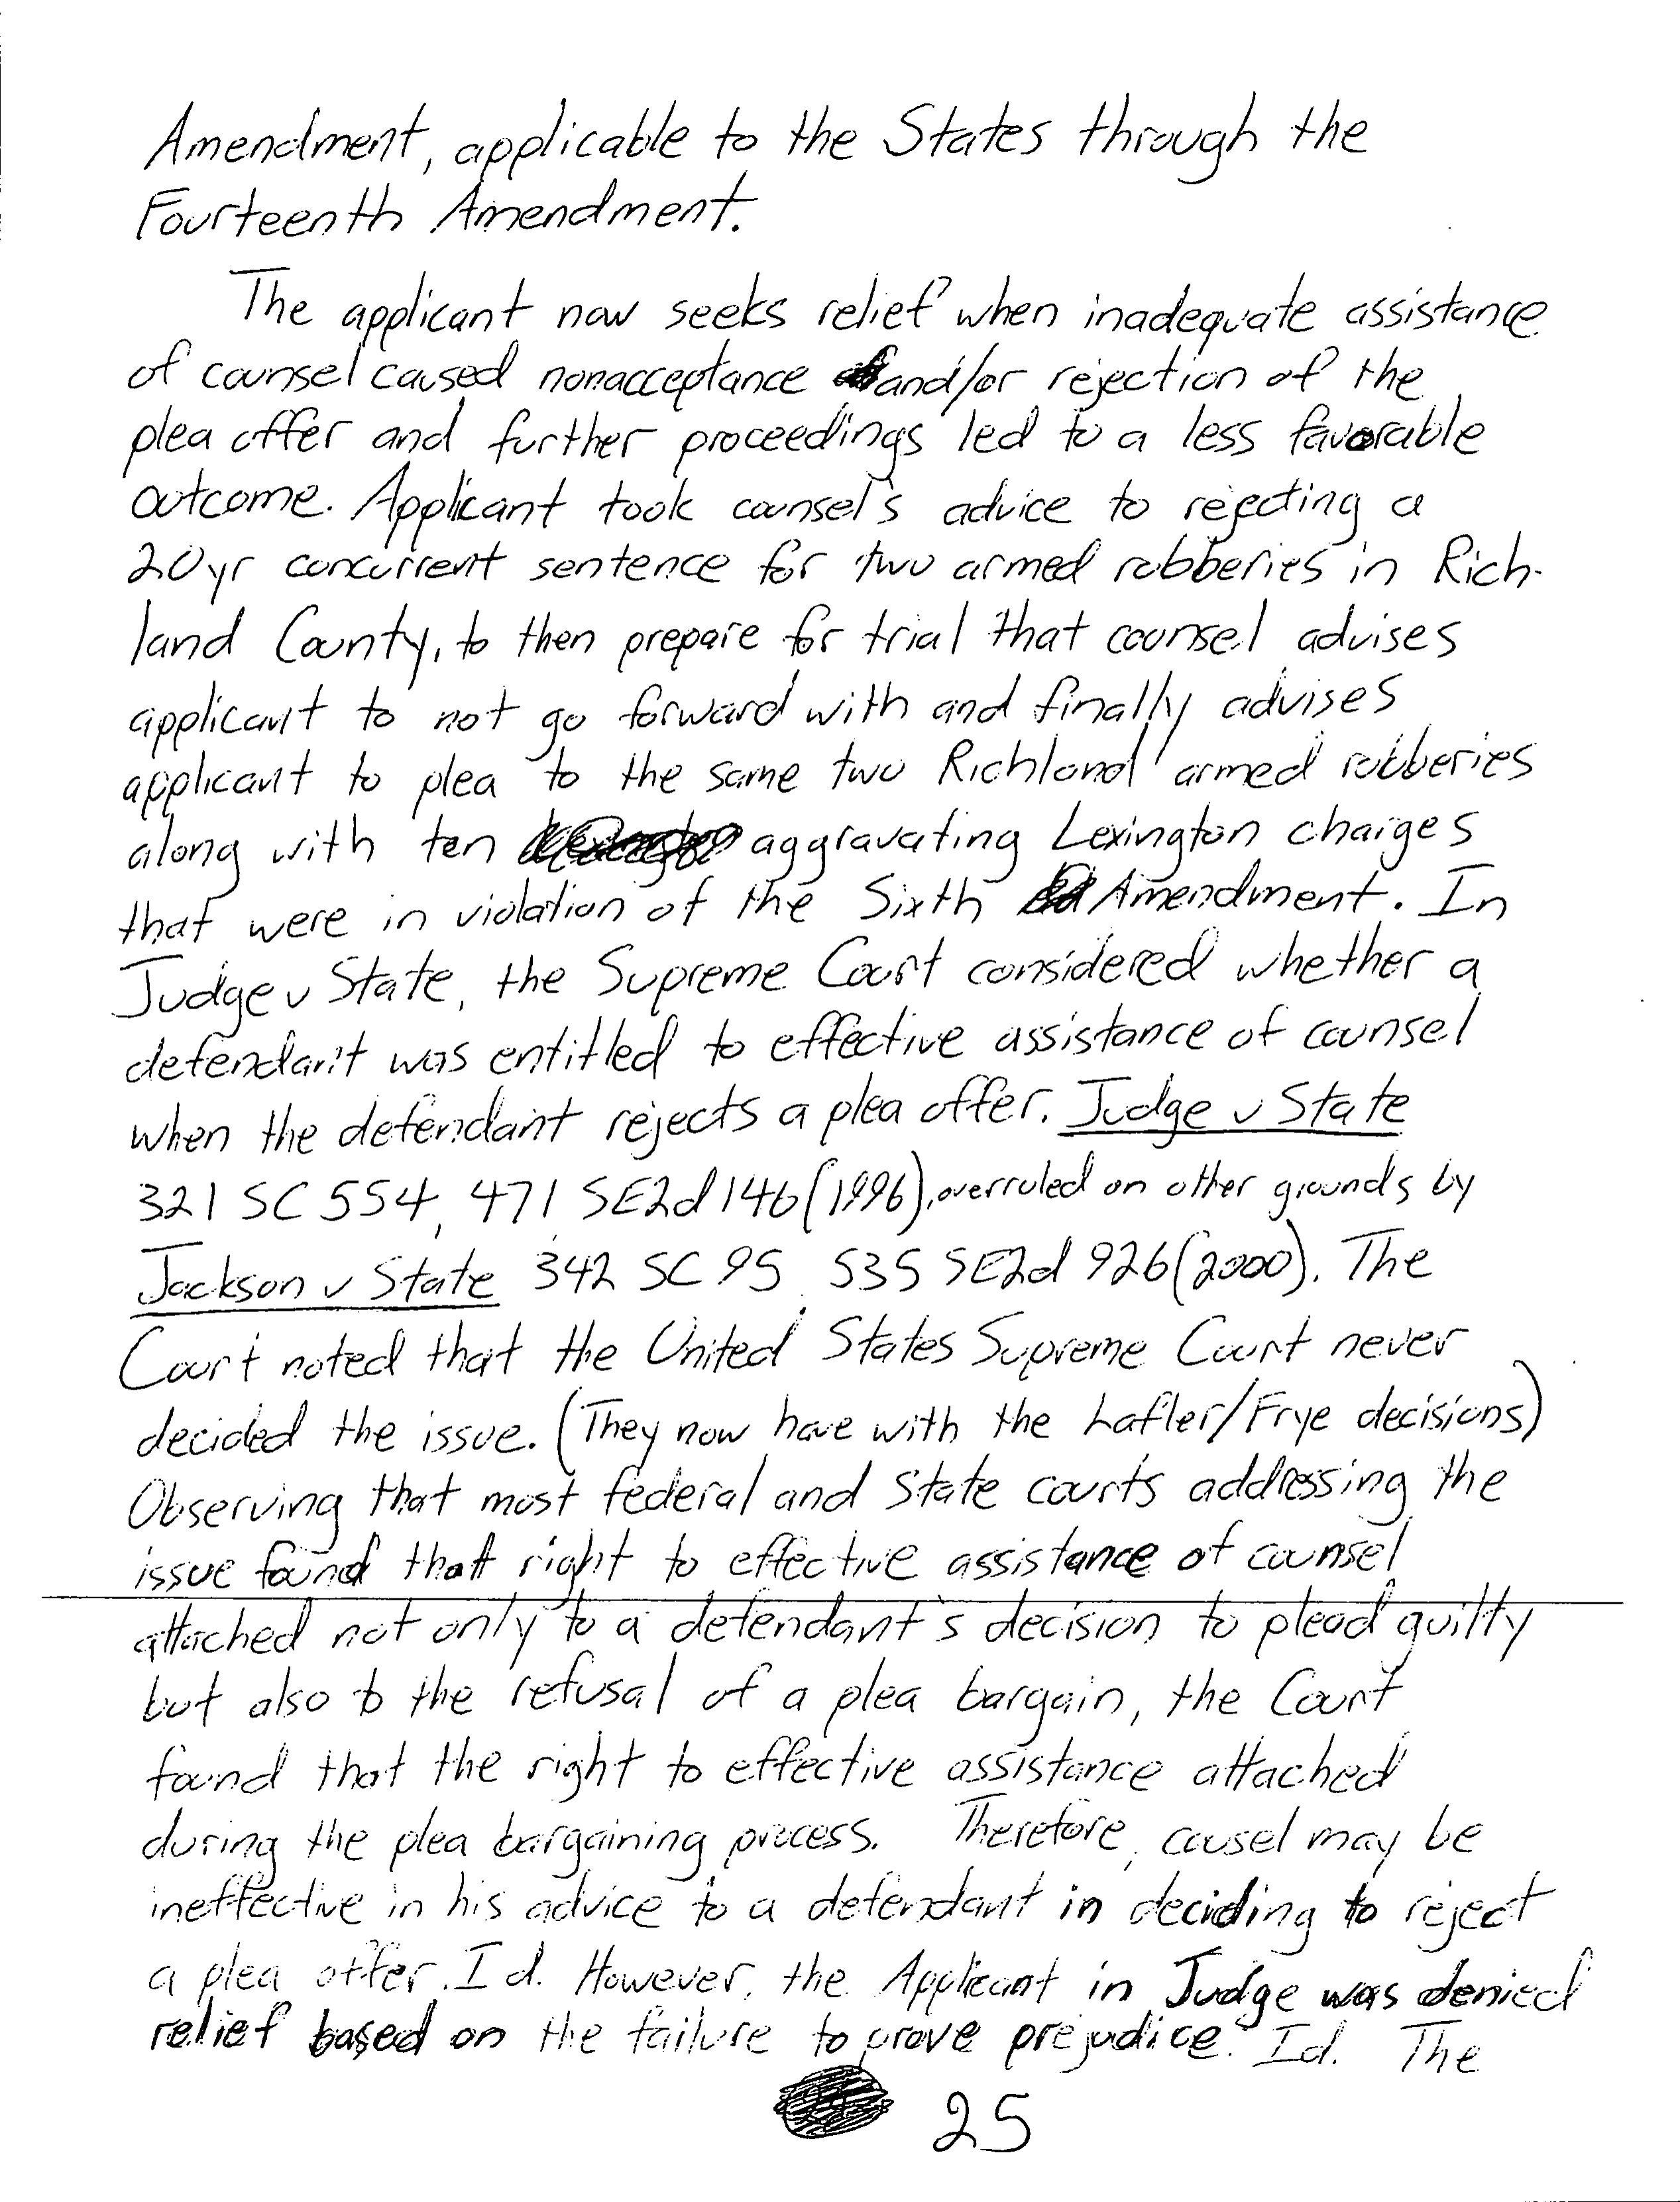 Amendment, applicable to the States through the
Fourteenth Amendment.
The applicant now seeks relief when inadequate assistance
of counsel caused nonacceptance and/or rejection of the
plea offer and further proceedings led to a less favorable
outcome. Applicant took counsel's advice to rejecting a
20yr concurrent sentence for two armed robberies in Rich-
land County, to then prepare for trial that counsel advises
applicant to not go forward with and finally advises
applicant to plea to the same two Richland armed robberies
along with ten aggravating Lexington charges
that were in violation of the Sixth Amendment. In
Judge v State, the Supreme Court considered whether a
defendant was entitled to effective assistance of counsel
when the defendant rejects a plea offer. Judge v State
321 SC 554, 471 SE2d 146 (1996), overruled on other grounds by
Jackson v State 342 SC 95, 535 SE2d 926 (2000). The
Court noted that the United States Supreme Court never
decided the issue. (They now have with the Lafler/Frye decisions)
Observing that most federal and State courts addressing the
issue found that right to effective assistance of counsel
attached not only to a defendant's decision to plead guilty
but also to the refusal of a plea bargain, the Court
found that the right to effective assistance attached
during the plea bargaining process. Therefore, cousel may be
ineffective in his advice to a defendant in deciding to reject
a plea offer. Id. However, the Applicant in Judge was denied
relief based on the failure to prove prejudice. Id. The
25